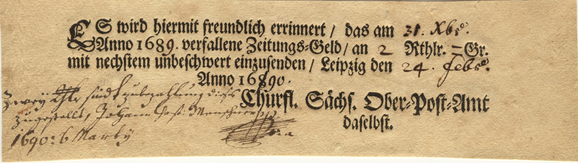 ES wird hiermit freundlich errinnert / das am 31. Xbr.
Anno 1689. verfallene Zeitungs-Geld / an 2 Rthlr. — Gr.
mit nechstem unbeschwert einzusenden / Leipzig den 24. Febr.
Anno 1690.
Churfl. Sächs. Ober-Post-Amt
daselbst.
Zwey Thlr sindt
zugestellt, Johann
1690: 6 Marty